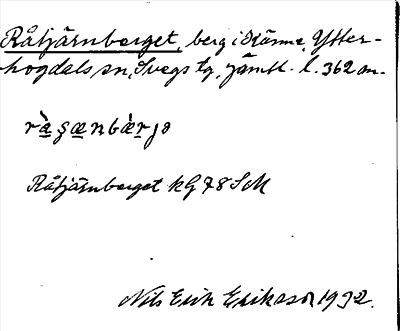 Råtjärnberget, berg i Känne, Ytter-
hogdals sn, Svegs tg, Jämtl. l. 362 m.
Råtjärnberget kG 78 SM
Nils Erik Eriksson 1932.